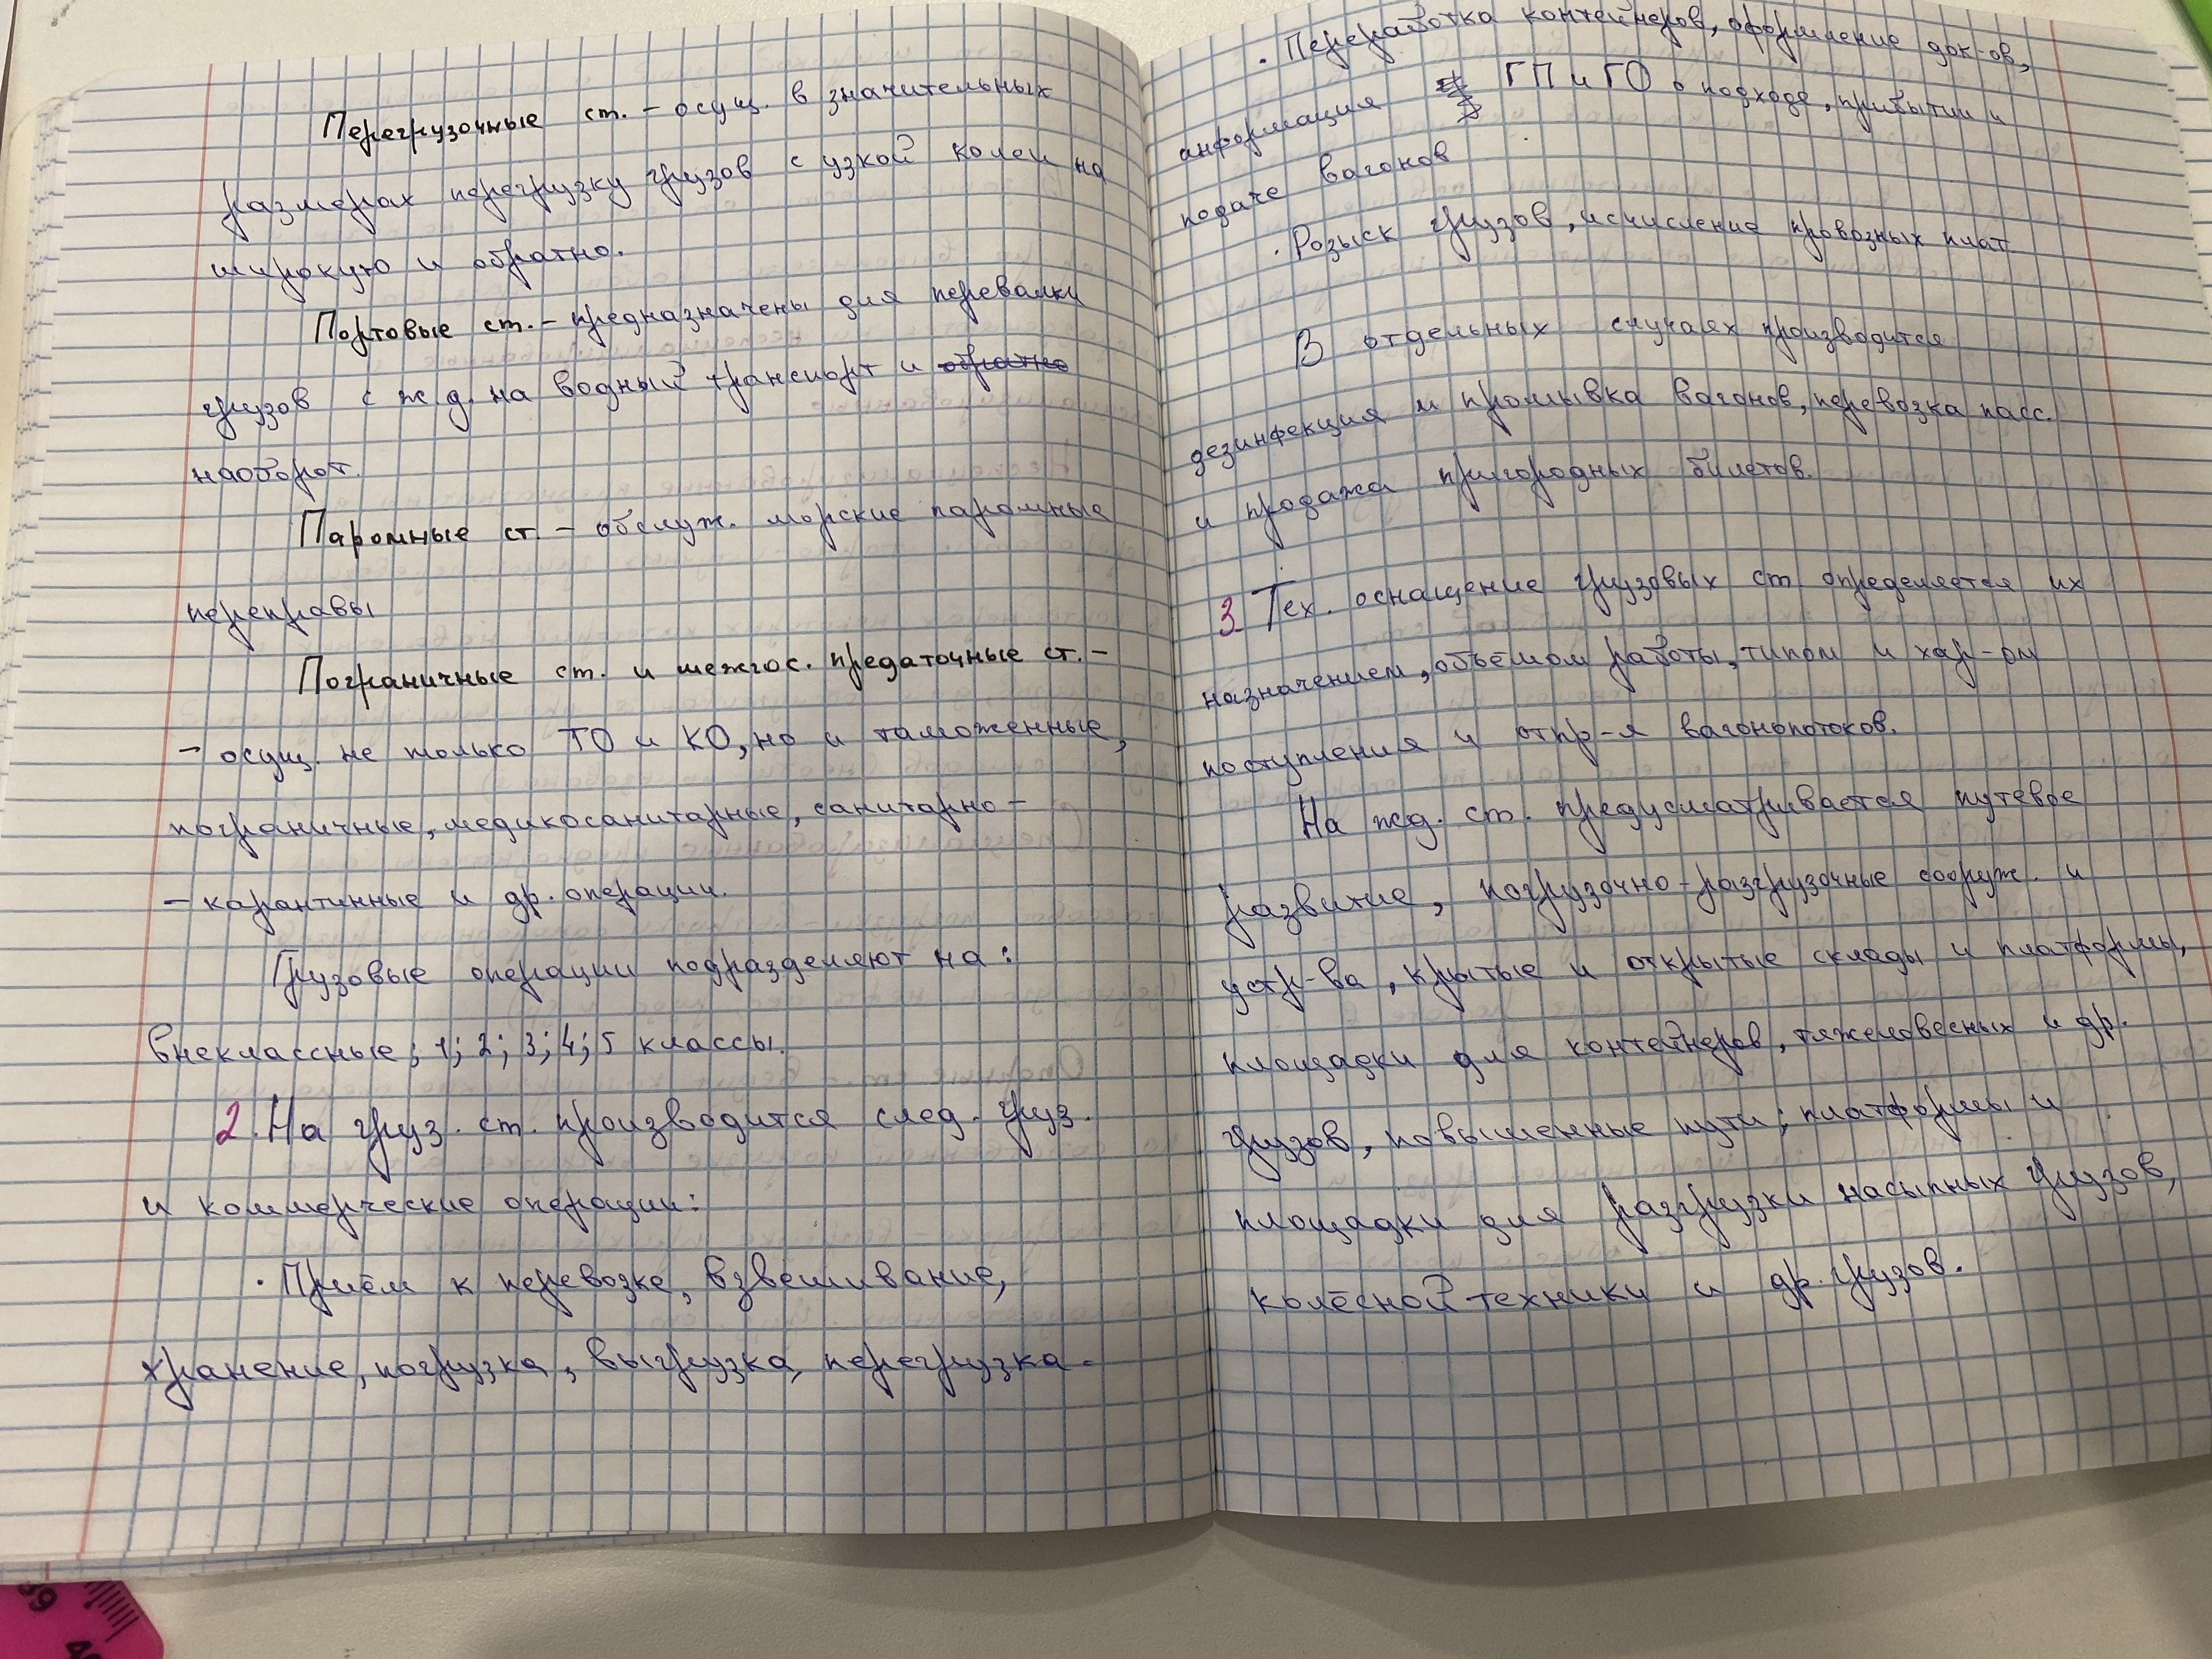 Перегрузочные ст. – осущ. в значительных
размерах перегрузку грузов с узкой колеи на
широкую и обратно.
Портовые ст. – предназначены для перевалки
грузов с ж.д. на водный транспорт и обратно
наоборот.
Паромные ст. – обслуж. морские паромные
переправы
Пограничные ст. и межгос. предаточные ст. –
– осущ. не только ТО и КО, но и таможенные,
пограничные, медикосанитарные, санитарно –
– карантинные и др. операции.
Грузовые операции подразделяют на:
внеклассные; 1; 2; 3; 4; 5 классы.
2. На груз. ст. производится след. груз.
и коммерческие операции:
· Приём к перевозке, взвешивание,
хранение, погрузка, выгрузка, перегрузка.
· Переработка контейнеров, оформление док-ов,
информация ГП и ГО о подходе, прибытии и
подаче вагонов
· Розыск грузов, исчисление провозных плат.
В отдельных случаях производится
дезинфекция и промывка вагонов, перевозка пасс.
и продажа пригородных билетов.
3. Тех. оснащение грузовых ст определяется их
назначением, объёмом работы, типом и хар-ом
поступления и отпр-я вагонопотоков.
На жд. ст. предусматривается путевое
развитие, погрузочно-разгрузочные сооруж. и
устр-ва, крытые и открытые склады и платформы,
площадки для контейнеров, тяжеловесных и др.
грузов, повышенные пути; платформы и
площадки для разгрузки насыпных грузов,
колёсной техники и др. грузов.
39